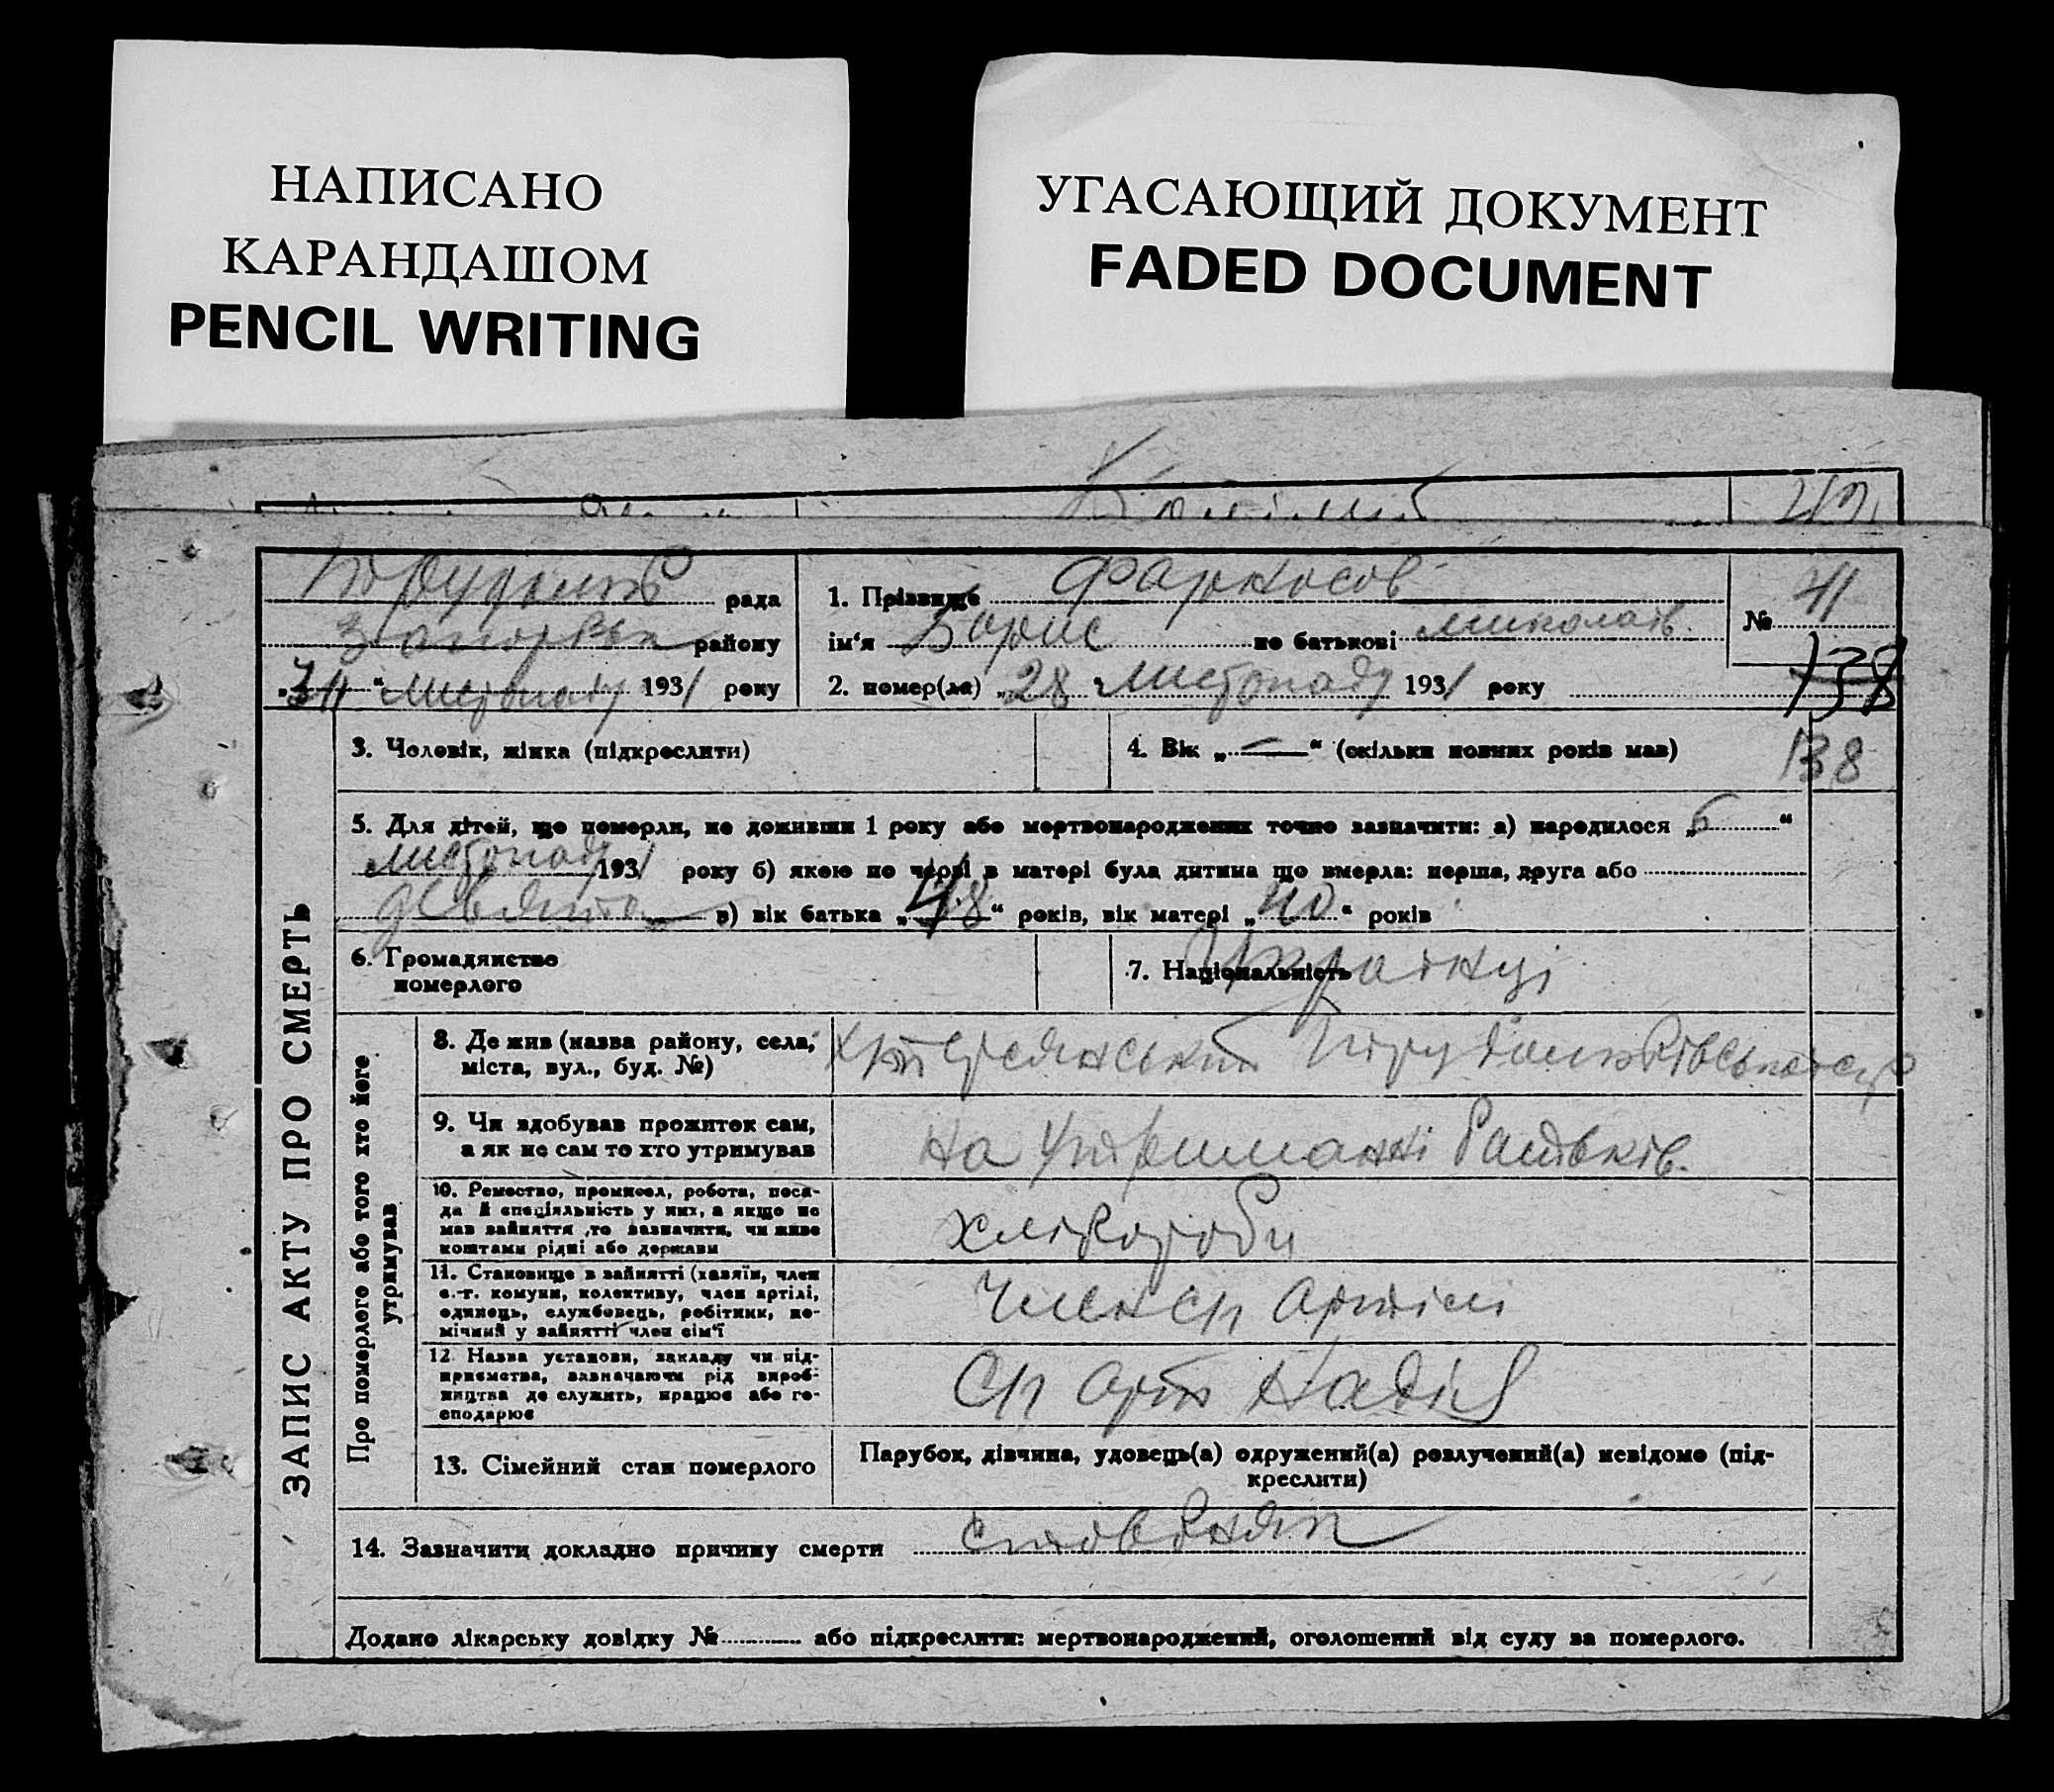 НАПИСАНО
КАРАНДАШОМ
PENCIL WRITING
УГАСАЮЩИЙ ДОКУМЕНТ
FADED DOCUMENT
рада
району
листопаду 1931 року
1. Прізвище Фарносов
ім'я Борис по батькові миколаїв.
2. помер(ла) „28 листопаду 1931 року
№ 41
138
138
ЗАПИС АКТУ ПРО СМЕРТЬ
3. Чоловік, жінка (підкреслити)
4. Вік „ — “ (скільки повних років мав)
5. Для дітей, що померли, не доживши 1 року або мертвонароджених точно зазначити: а) народилося „6“
листопаду 1931 року б) якою по черзі в матері була дитина що вмерла: перша, друга або
девята в) вік батька „48“ років, вік матері „40“ років
6. Громадянство
померлого
7. Національність Українці
Про померлого або того хто його
утримував
8. Де жив (назва району, села,
міста, вул., буд. №)
9. Чи здобував прожиток сам,
а як не сам то хто утримував
на утриманні батьків.
10. Ремество, промисел, робота, поса-
да й спеціяльність у них, а якщо не
мав зайняття, то зазначити, чи живе
коштами рідні або держави
хлібороби
11. Становище в зайнятті (хазяїн, член
с.-г. комуни, колективу, член артілі,
одинець, службовець, робітник, по-
мічний у зайнятті член сім'ї
Член сг артілі
12 Назва установи, закладу чи під-
приємства, зазначаючи рід вироб-
ництва де служить, працює або го-
сподарює
Сг арт Надія
13. Сімейний стан померлого
Парубок, дівчина, удовець(а) одружений(а) розлучений(а) невідомо (під-
креслити)
14. Зазначити докладно причину смерти
Додано лікарську довідку № або підкреслити: мертвонароджений, оголошений від суду за померлого.